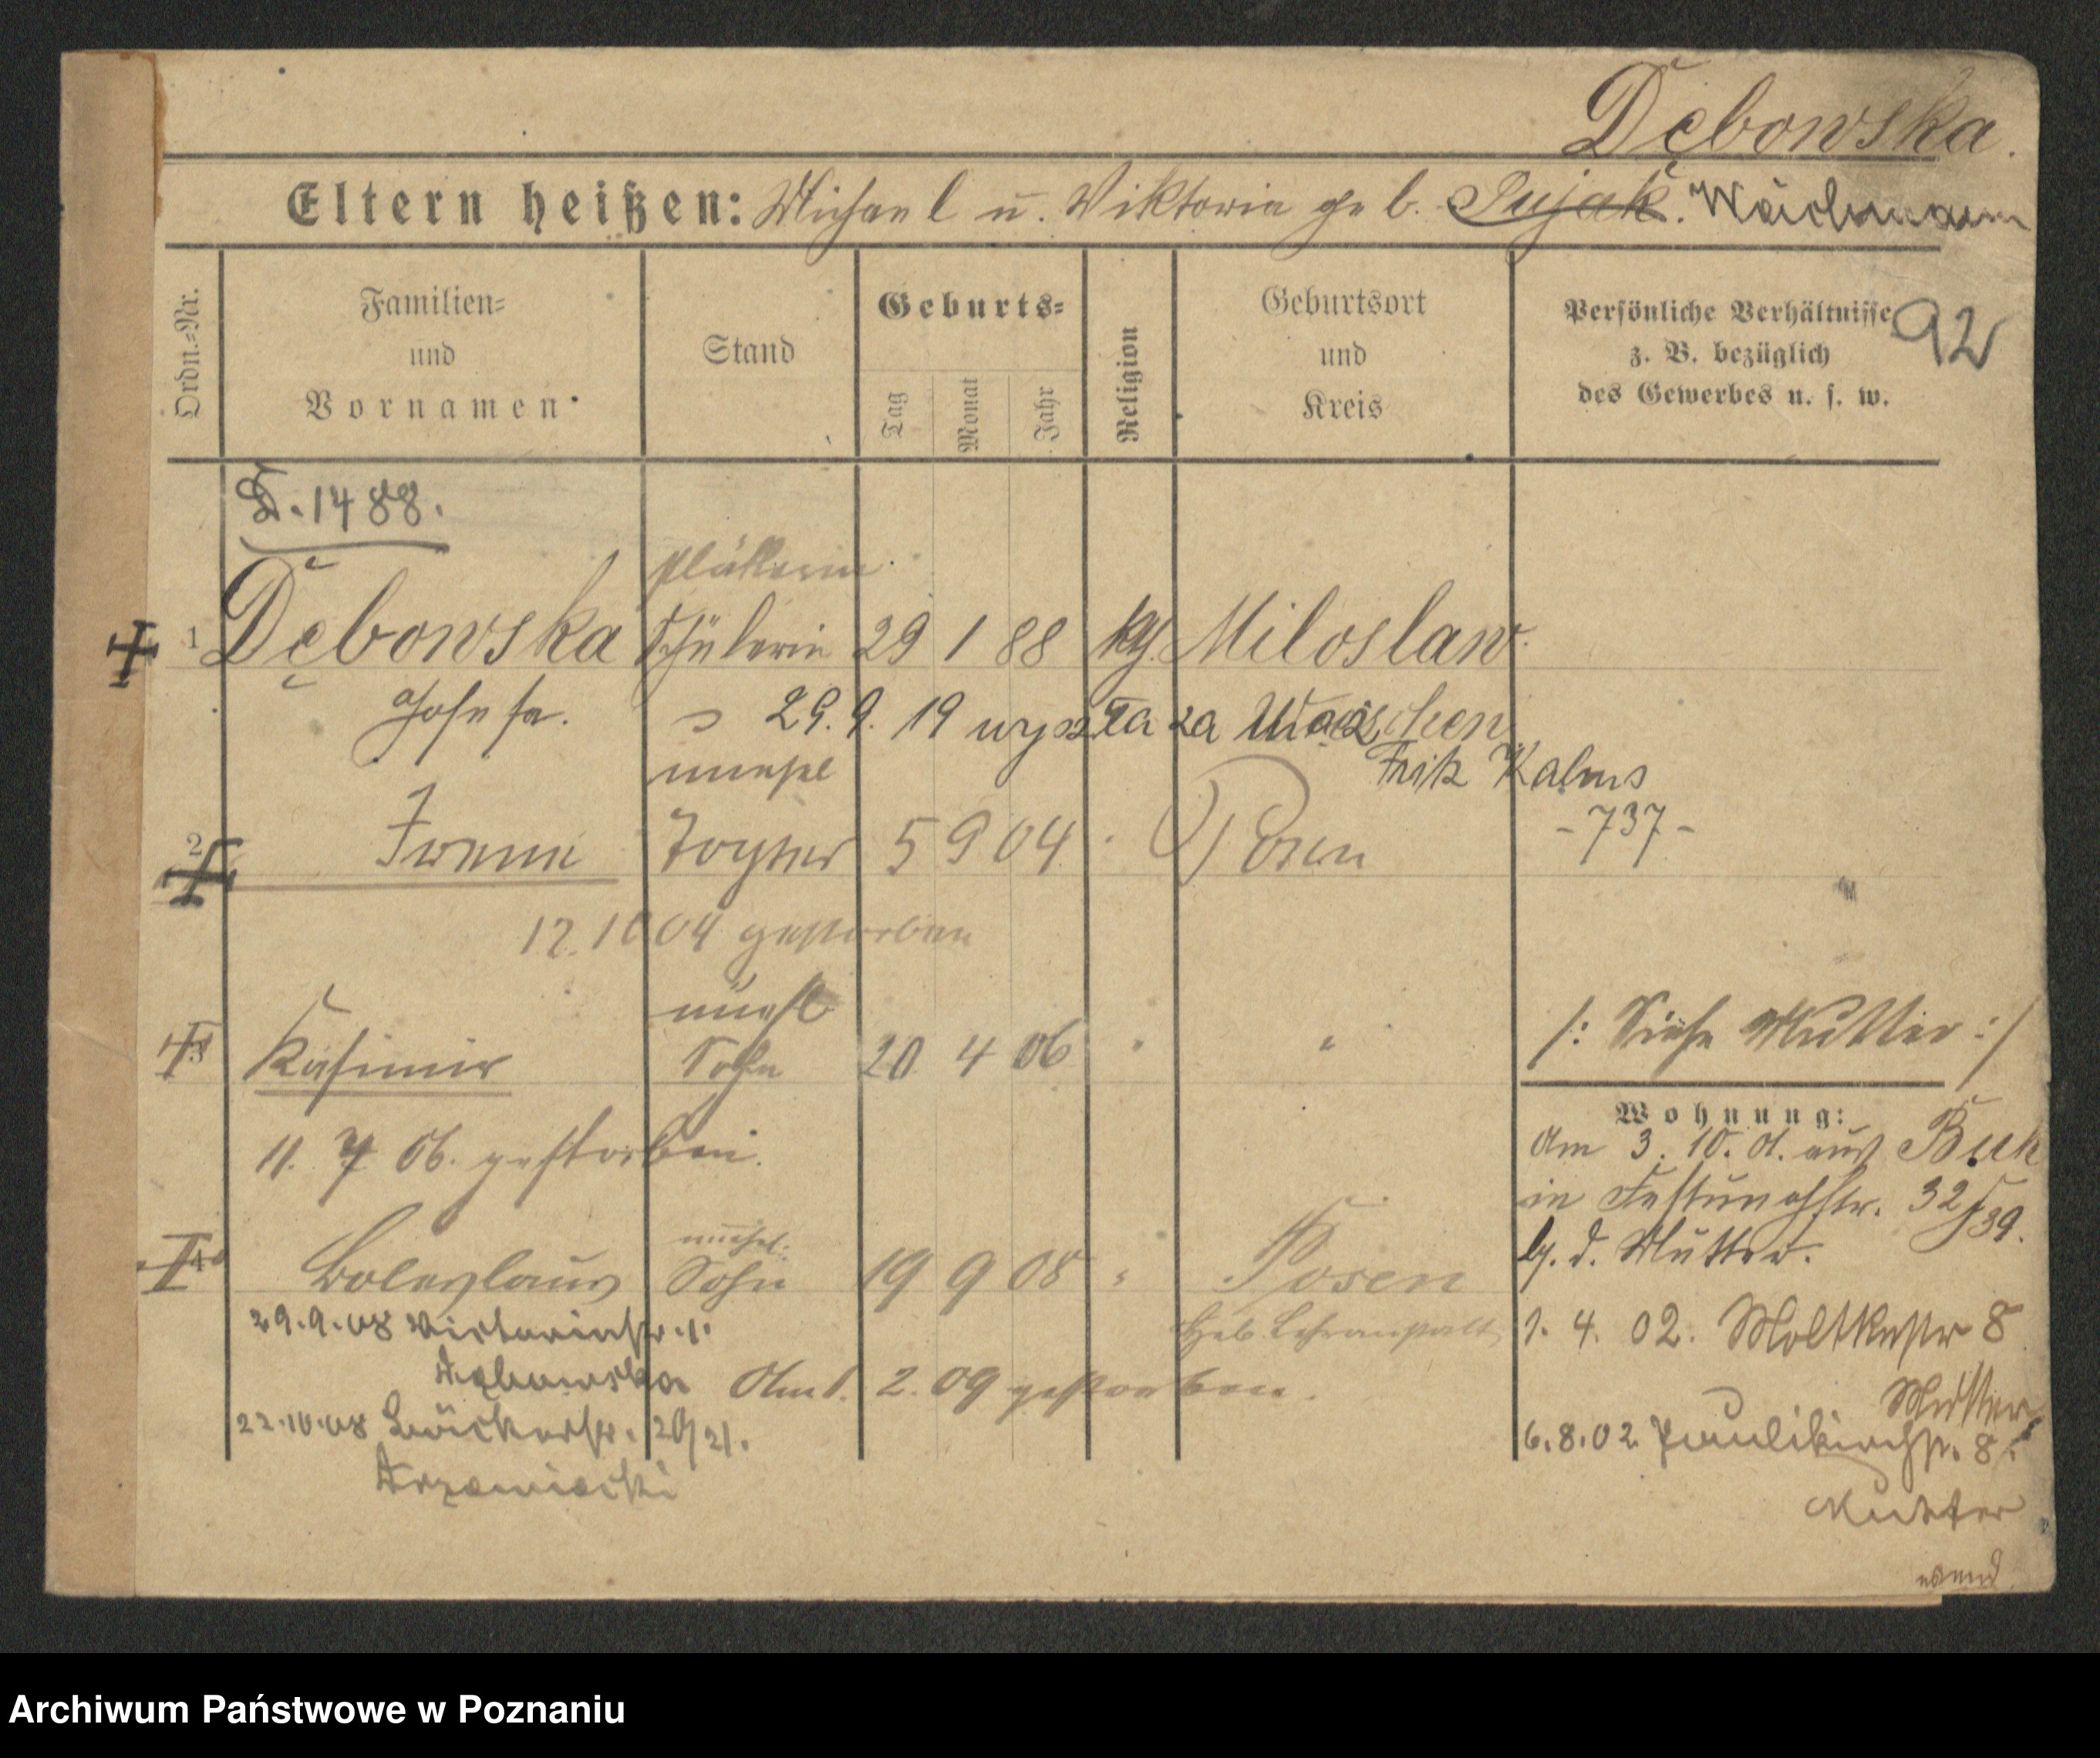 Dębowska.
Eltern heißen: Michael u. Viktoria geb. Pujak. Wachmann
Ordn.=Nr.
Familien= und Vornamen
Stand
Geburts=
Tag
Monat
Jahr
Religion
Geburtsort und Kreis
Persönliche Verhältnisse
z. B. bezüglich
des Gewerbes u. s. w.
92
D. 1488.
Plätterin
1 Dębowska Schülerin 29 1 88 kg. Miloslaw
Josefa. 29.9.19 wyszła za
Fritz Kalms
- 737 -
unehel
2 Irene Tochter 5 9 04 Posen
12.10 04 gestorben
unehl
3 Kasimir Sohn 20 4 06 " "
11. 7 06. gestorben.
/: Siehe Mutter :/
Wohnung:
Am 3. 10. 01. aus Buk
in Festungsstr. 32/39.
b. d. Mutter.
unehel.
4 Boleslaus Sohn 19 9 08 " Posen
Heb. Lehranstalt
29.9.08 Victoriastr. 1.
Am 1. 2. 09 gestorben.
22.10.08 20/21.
1. 4. 02. Moltkestr 8
Mutter
6.8.02. Paulikirchstr. 8.
Mutter
wend
Archiwum Państwowe w Poznaniu